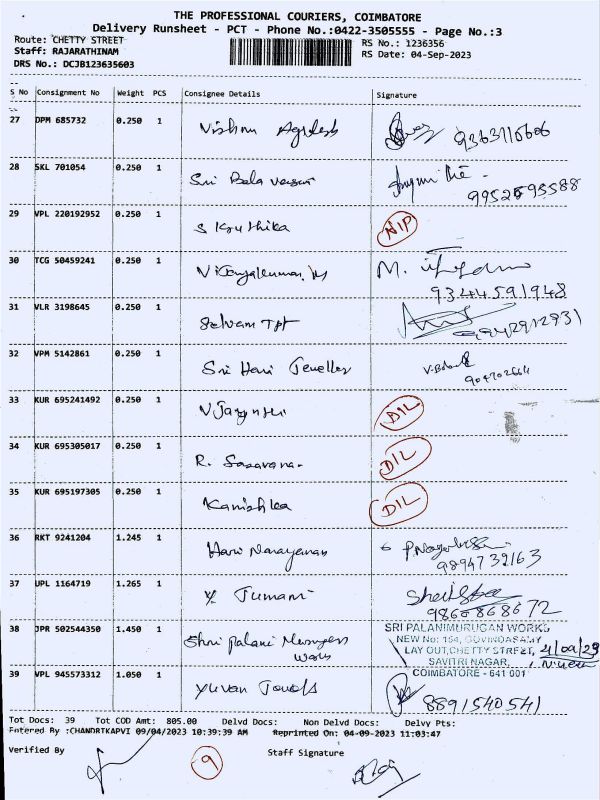 THE PROFESSIONAL COURIERS, COIMBATORE
Delivery Runsheet - PCT - Phone No.:0422-3505555 - Page No.:3
Route: CHETTY STREET RS No.: 1236356
Staff: RAJARATHINAM RS Date: 04-Sep-2023
DRS No.: DCJB123635603
S No Consignment No Weight PCS Consignee Details Signature
27 DPM 685732 0.250 1 Vishnu 9363110606
28 SKL 701054 0.250 1 Sri Bala 9952595588
29 VPL 220192952 0.250 1 S Kruthika NIP
30 TCG 50459241 0.250 1 M. 9344591948
31 VLR 3198645 0.250 1 Selvam Tpt 9942912931
32 VPM 5142861 0.250 1 Sri Hari Jeweller
33 KUR 695241492 0.250 1 DIL
34 KUR 695305017 0.250 1 R. DIL
35 KUR 695197305 0.250 1 Kanishka DIL
36 RKT 9241204 1.245 1 Hari Narayanan 9894732163
37 UPL 1164719 1.265 1 Y. 9860868672
38 JPR 502544350 1.450 1 Shri Palani Murugan
Works
SRI PALANIMURUGAN WORKS
NEW No: 164, GOVINDASAMY
LAY OUT, CHETTY STREET,
SAVITRI NAGAR,
COIMBATORE - 641 001
4/09/23
39 VPL 945573312 1.050 1 Yuvan 8891540541
Tot Docs: 39 Tot COD Amt: 805.00 Delvd Docs: Non Delvd Docs: Delvy Pts:
Entered By :CHANDTKAPVI 09/04/2023 10:39:39 AM Reprinted On: 04-09-2023 11:03:47
Verified By 9 Staff Signature